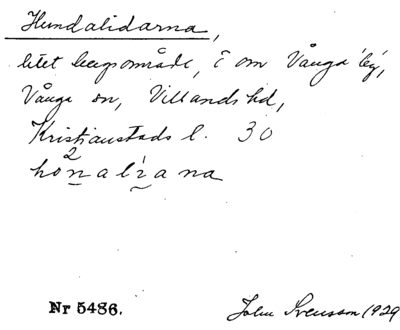 Hundalidarna,
litet bergsområde, i om Vånga by,
Vånga sn, Villands hd,
Kristianstads l. 30
2
honaliana
Nr 5486. John Svensson 1929